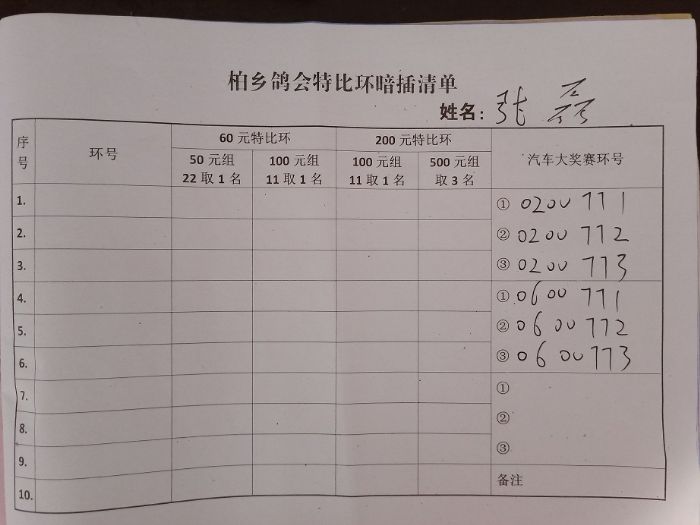 柏乡鸽会特比环暗插清单
姓名：张磊
序号 环号 60元特比环 200元特比环 汽车大奖赛环号
50元组 100元组 100元组 500元组
22取1名 11取1名 11取1名 取3名
1. ① 0200 771
2. ② 0200 772
3. ③ 0200 773
4. ① 0600 771
5. ② 0600 772
6. ③ 0600 773
7. ①
8. ②
9. ③
10. 备注